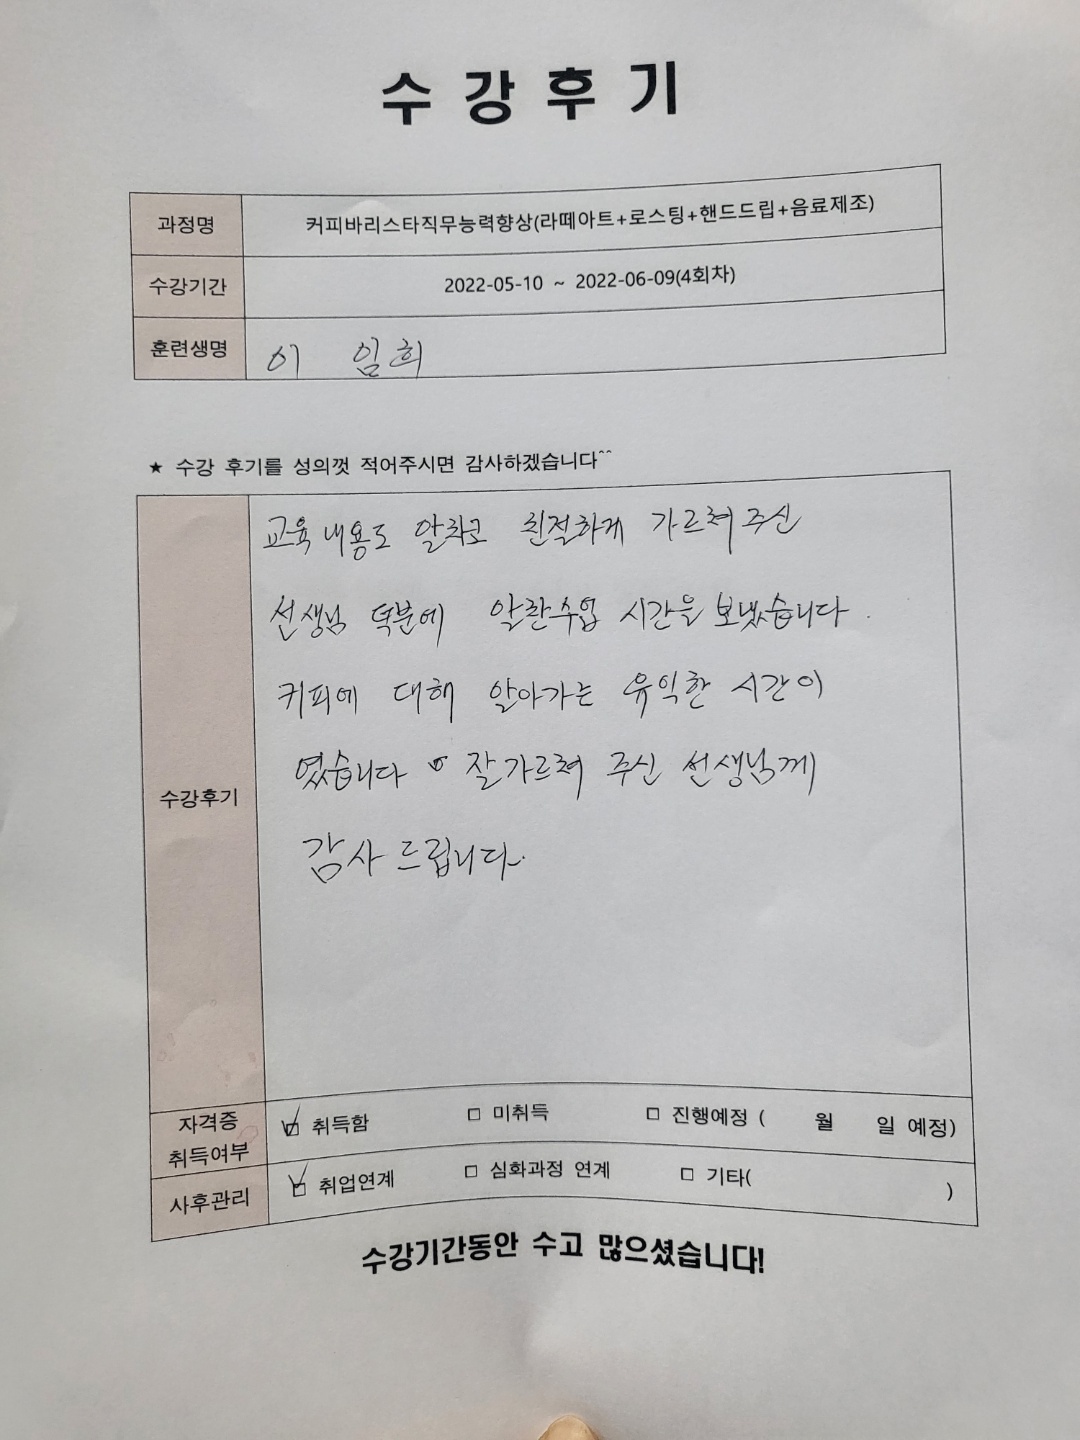 수강후기
과정명 커피바리스타직무능력향상(라떼아트+로스팅+핸드드립+음료제조)
수강기간 2022-05-10 ~ 2022-06-09(4회차)
훈련생명 이 임희
★ 수강 후기를 성의껏 적어주시면 감사하겠습니다^^
교육내용도 알차고 친절하게 가르쳐주신
선생님 덕분에 알찬수업 시간을 보냈습니다.
커피에 대해 알아가는 유익한 시간이
수강후기
였습니다 잘가르쳐 주신 선생님께
감사드립니다.
자격증 취득여부 취득함 □ 미취득 □ 진행예정 ( 월 일 예정)
사후관리 취업연계 □ 심화과정 연계 □ 기타( )
수강기간동안 수고 많으셨습니다!